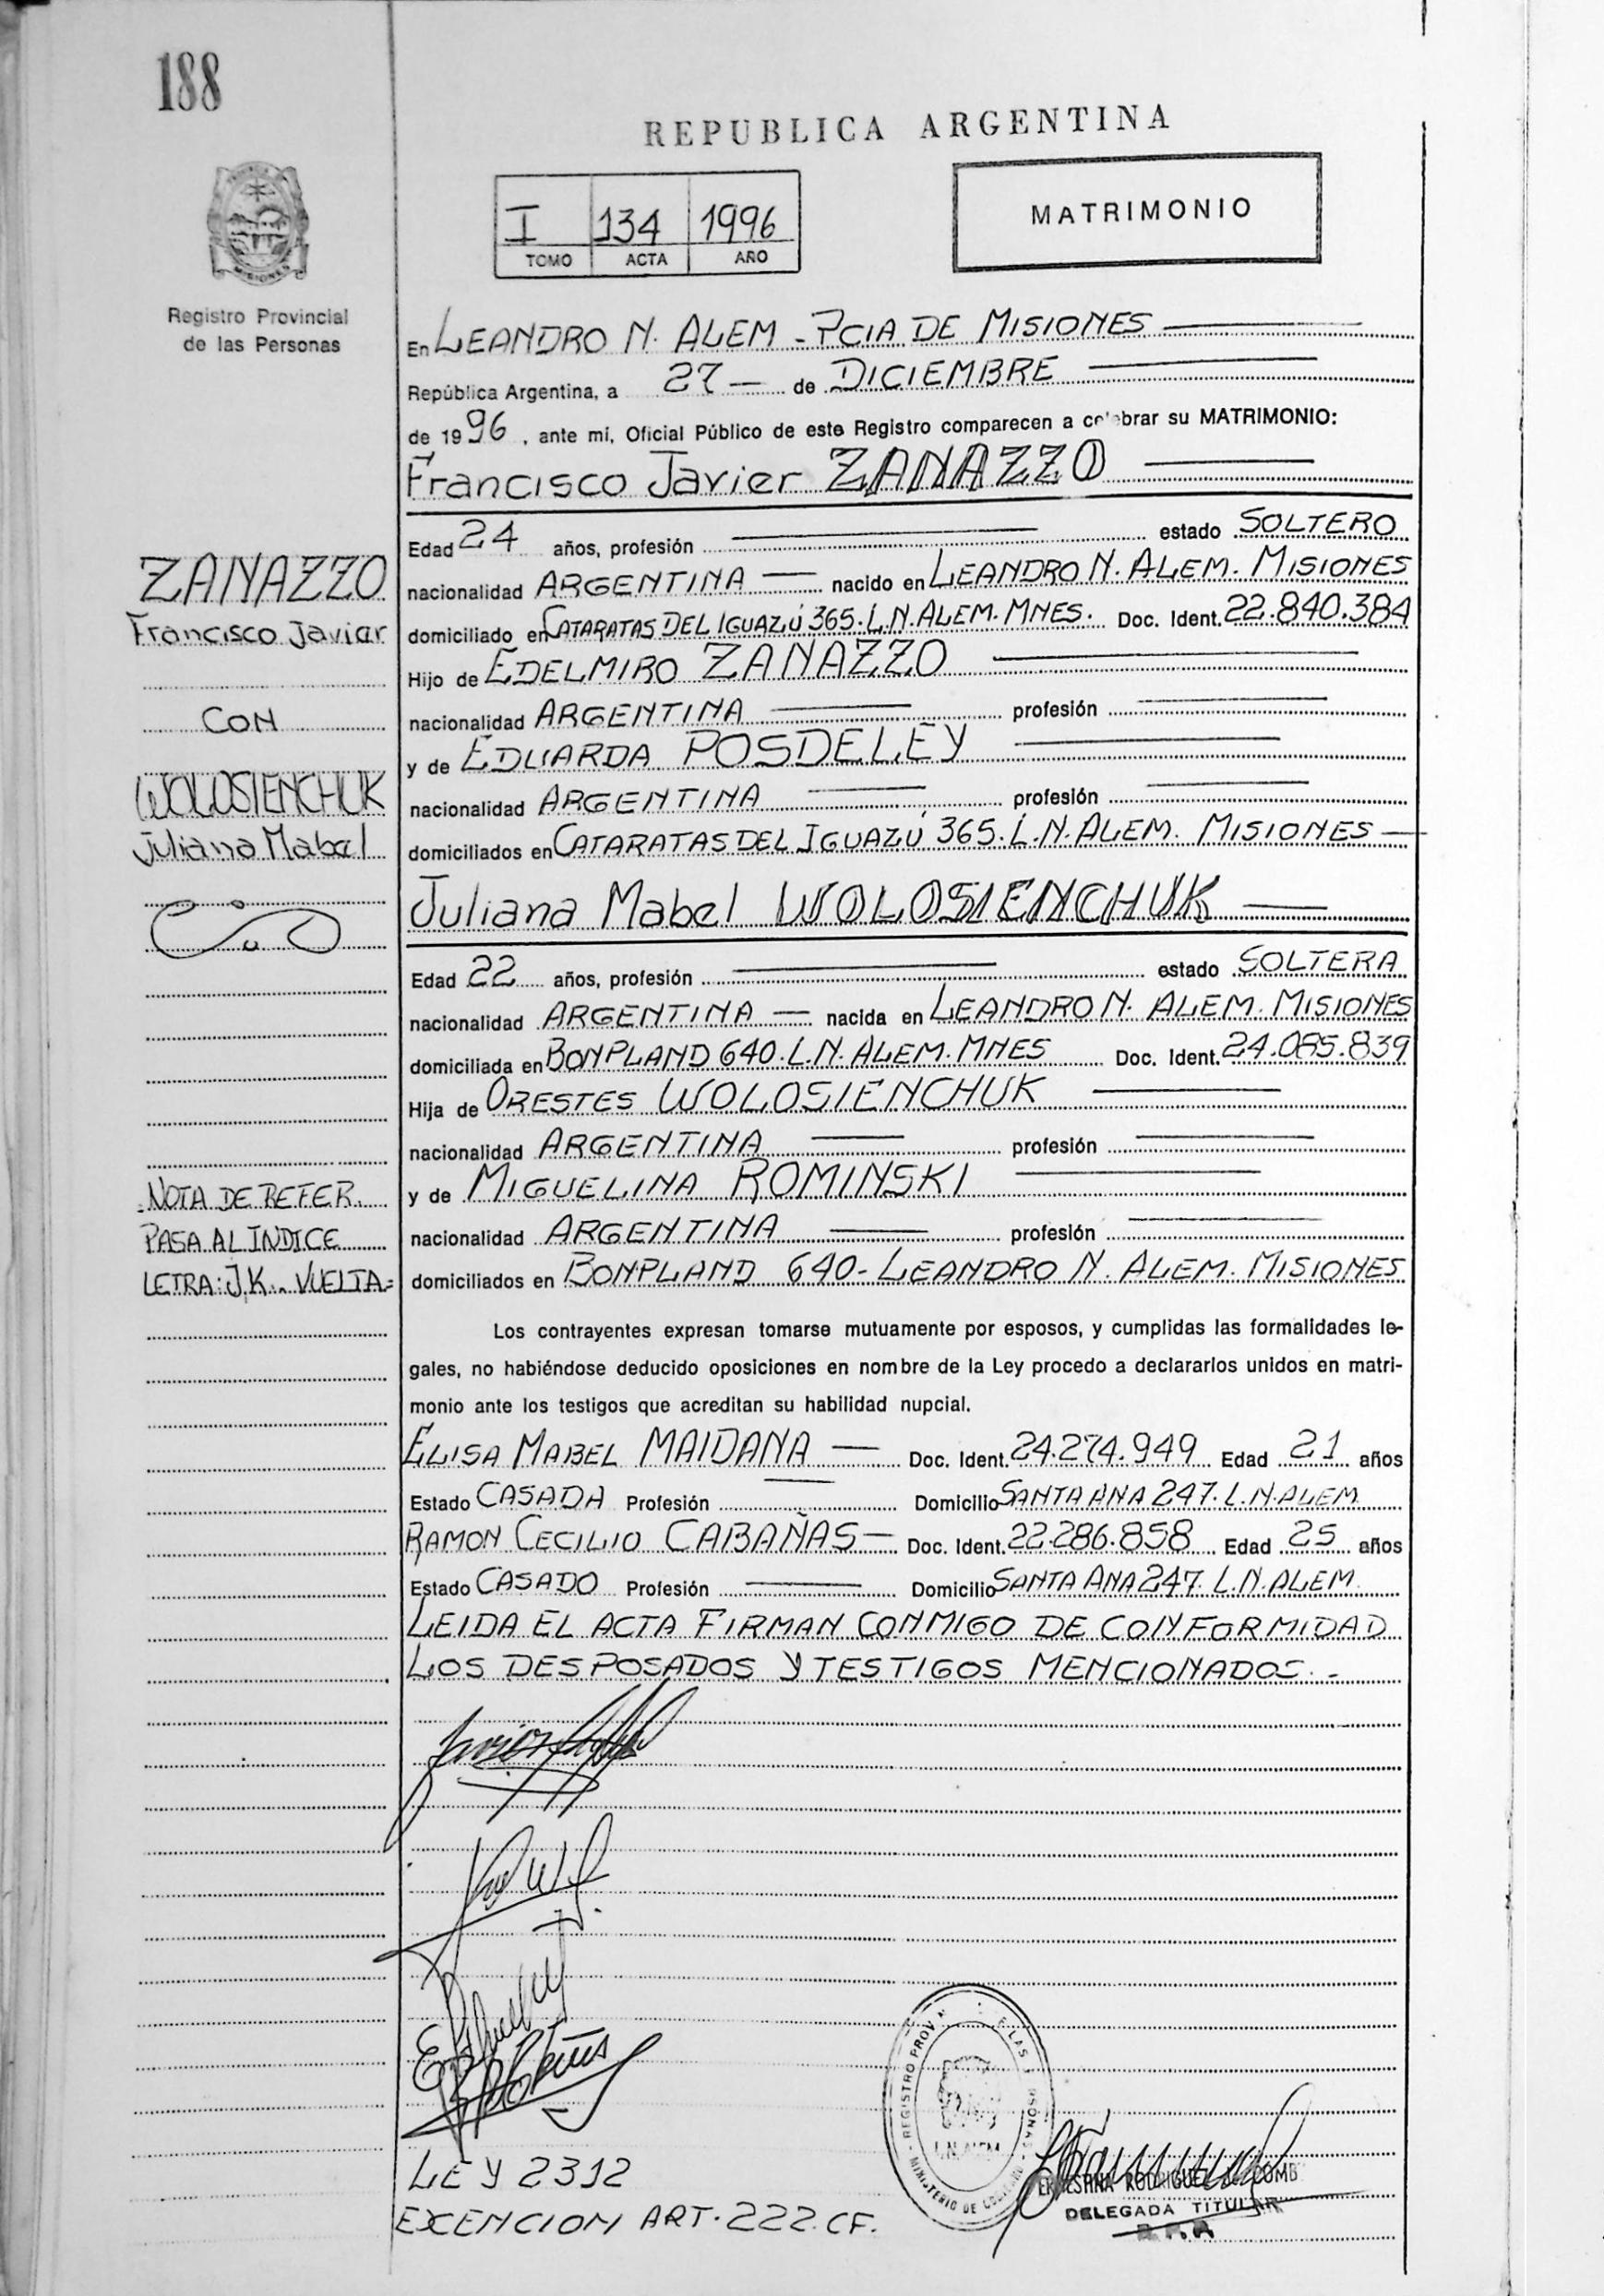 188
REPUBLICA ARGENTINA
I 134 1996
TOMO ACTA AÑO
MATRIMONIO
MISIONES
Registro Provincial
de las Personas
En LEANDRO N. ALEM - PCIA DE MISIONES
República Argentina, a 27 — de DICIEMBRE
de 1996, ante mi, Oficial Público de este Registro comparecen a celebrar su MATRIMONIO:
Francisco Javier ZANAZZO
Edad 24 años, profesión estado SOLTERO
nacionalidad ARGENTINA — nacido en LEANDRO N. ALEM. MISIONES
domiciliado en CATARATAS DEL IGUAZÚ 365. L.N. ALEM. MNES. Doc. Ident. 22.840.384
Hijo de EDELMIRO ZANAZZO
nacionalidad ARGENTINA profesión
y de EDUARDA POSDELEY
nacionalidad ARGENTINA profesión
domiciliados en CATARATAS DEL IGUAZÚ 365. L.N. ALEM. MISIONES
ZANAZZO
Francisco Javier
CON
WOLOSIENCHUK
Juliana Mabel
Juliana Mabel WOLOSIENCHUK
Edad 22 años, profesión estado SOLTERA
nacionalidad ARGENTINA — nacida en LEANDRO N. ALEM. MISIONES
domiciliada en BONPLAND 640. L.N. ALEM. MNES Doc. Ident. 24.085.839
Hija de ORESTES WOLOSIENCHUK
nacionalidad ARGENTINA profesión
y de MIGUELINA ROMINSKI
nacionalidad ARGENTINA profesión
domiciliados en BONPLAND 640 - LEANDRO N. ALEM. MISIONES
NOTA DE REFER.
PASA AL INDICE
LETRA: J.K.. VUELTA=
Los contrayentes expresan tomarse mutuamente por esposos, y cumplidas las formalidades le-
gales, no habiéndose deducido oposiciones en nombre de la Ley procedo a declararlos unidos en matri-
monio ante los testigos que acreditan su habilidad nupcial.
ELISA MABEL MAIDANA — Doc. Ident. 24.274.949 Edad 21 años
Estado CASADA Profesión Domicilio SANTA ANA 247. L.N. ALEM
RAMON CECILIO CABAÑAS — Doc. Ident. 22.286.858 Edad 25 años
Estado CASADO Profesión Domicilio SANTA ANA 247. L.N. ALEM
LEIDA EL ACTA FIRMAN CONMIGO DE CONFORMIDAD
LOS DESPOSADOS Y TESTIGOS MENCIONADOS. -
REGISTRO PROV
E LAS
L.N. ALEM
MINISTERIO DE
RODRIGUEZ
DELEGADA TITULAR
LEY 2312
EXENCION ART. 222. CF.